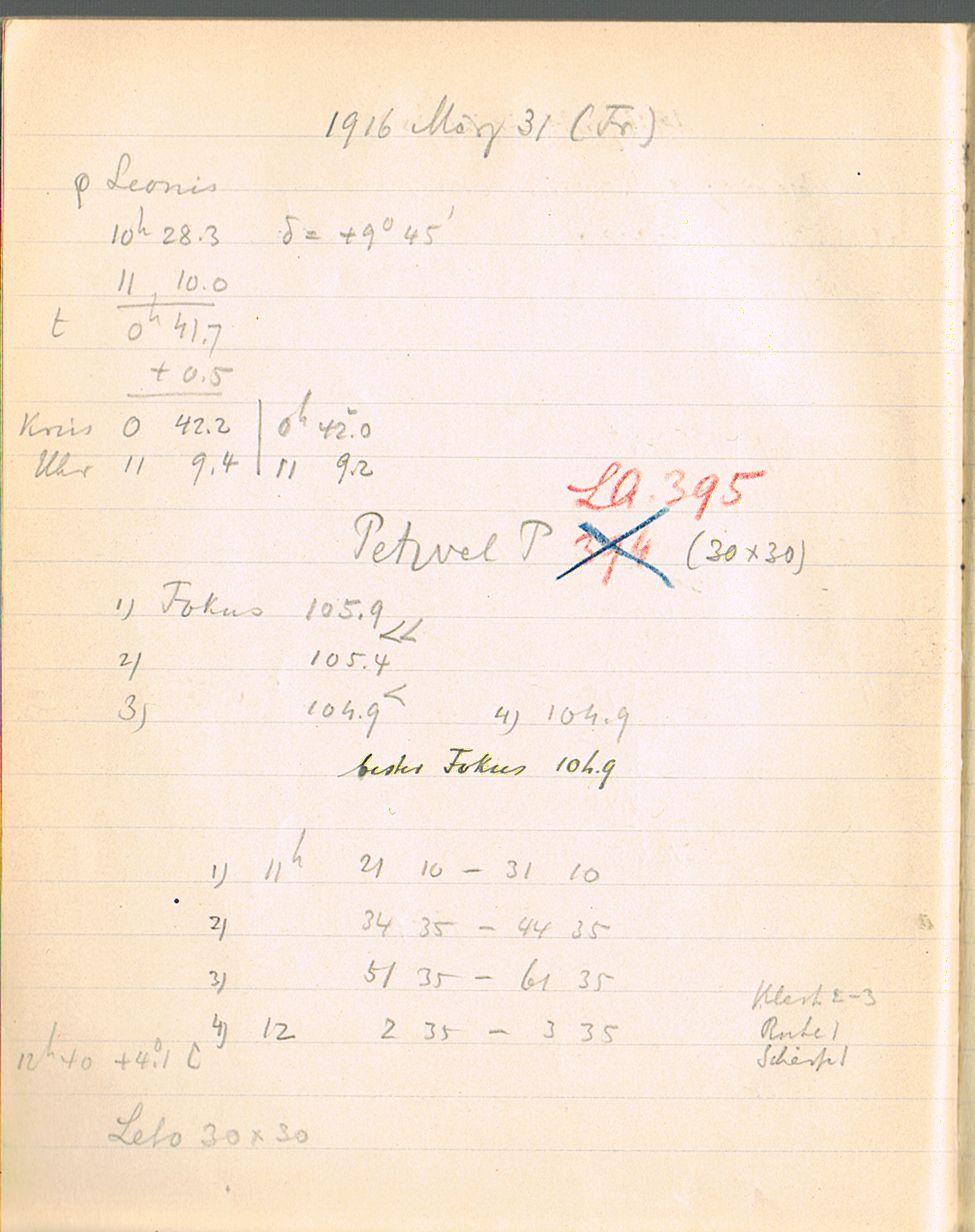 1916 März 31 (Fr)
ρ Leonis
10h 28.3 δ = +9° 45'
11 10.0
t 0h 41.7
+ 0.5
Kreis 0 42.2 | 0h 42.0
Uhr 11 9.4 | 11 9.2
LA. 395
Petzvel P (30×30)
1) Fokus 105.9
<<
2) 105.4
3) 104.9 < 4) 104.9
bester Fokus 104.9
1) 11h 21 10 – 31 10
2) 34 35 – 44 35
3) 51 35 – 61 35
4) 12 2 35 – 3 35
12h 40 +4°.1 C
2–3
Ruhe 1
Schärfe 1
Leto 30×30